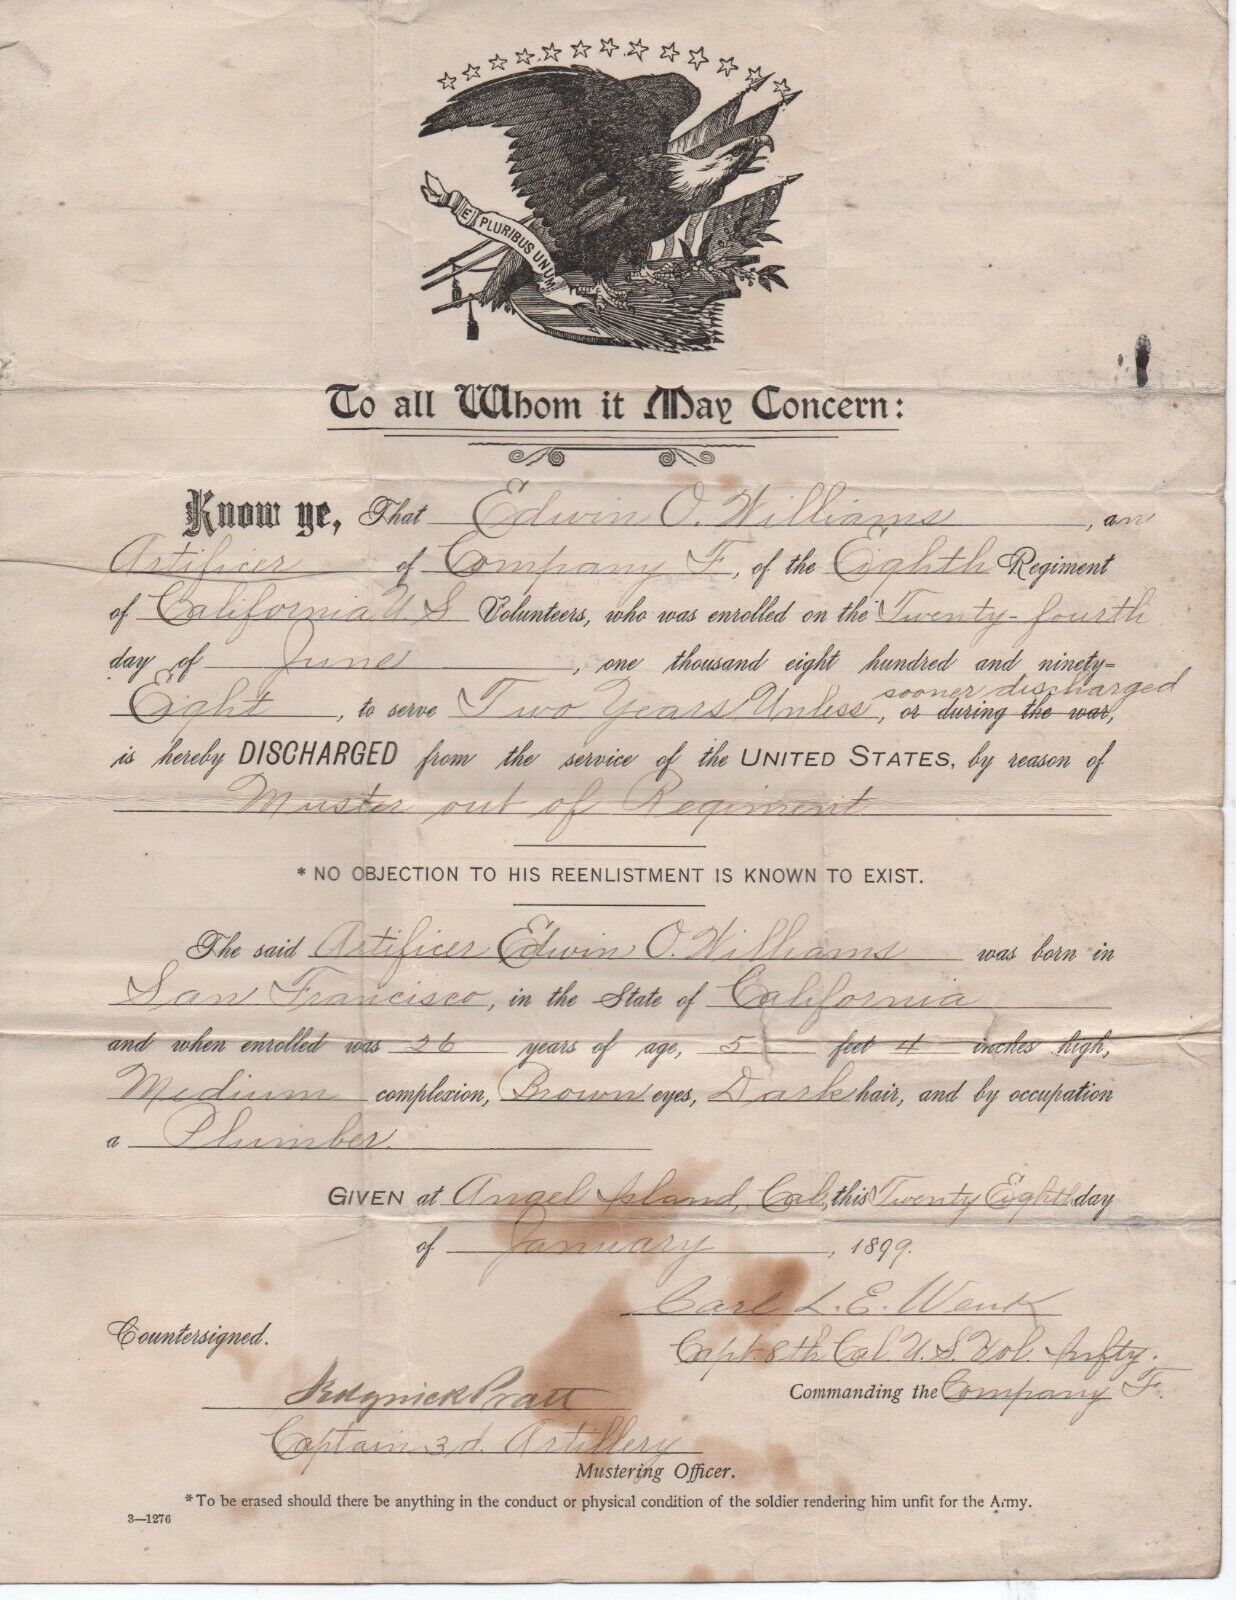 E PLURIBUS UNUM
To all Whom it May Concern:
Know ye, That Edwin O. Williams, an
Artificer of Company F, of the Eighth Regiment
of California U S Volunteers, who was enrolled on the Twenty-fourth
day of June, one thousand eight hundred and ninety-
sooner discharged
Eight, to serve Two Years Unless, or during the war,
is hereby DISCHARGED from the service of the UNITED STATES, by reason of
Muster out of Regiment
* NO OBJECTION TO HIS REENLISTMENT IS KNOWN TO EXIST.
The said Artificer Edwin O. Williams was born in
San Francisco, in the State of California
and when enrolled was 26 years of age, 5 feet 4 inches high,
Medium complexion, Brown eyes, Dark hair, and by occupation
a Plumber.
GIVEN at Angel Island, Cal, this Twenty Eighth day
of January, 1899.
Carl L. E. Wenk
Countersigned.
Capt. 8th Cal. U. S. Vol. Infty.
Commanding the Company F.
Pratt
Captain 3d. Artillery
Mustering Officer.
*To be erased should there be anything in the conduct or physical condition of the soldier rendering him unfit for the Army.
3—1276